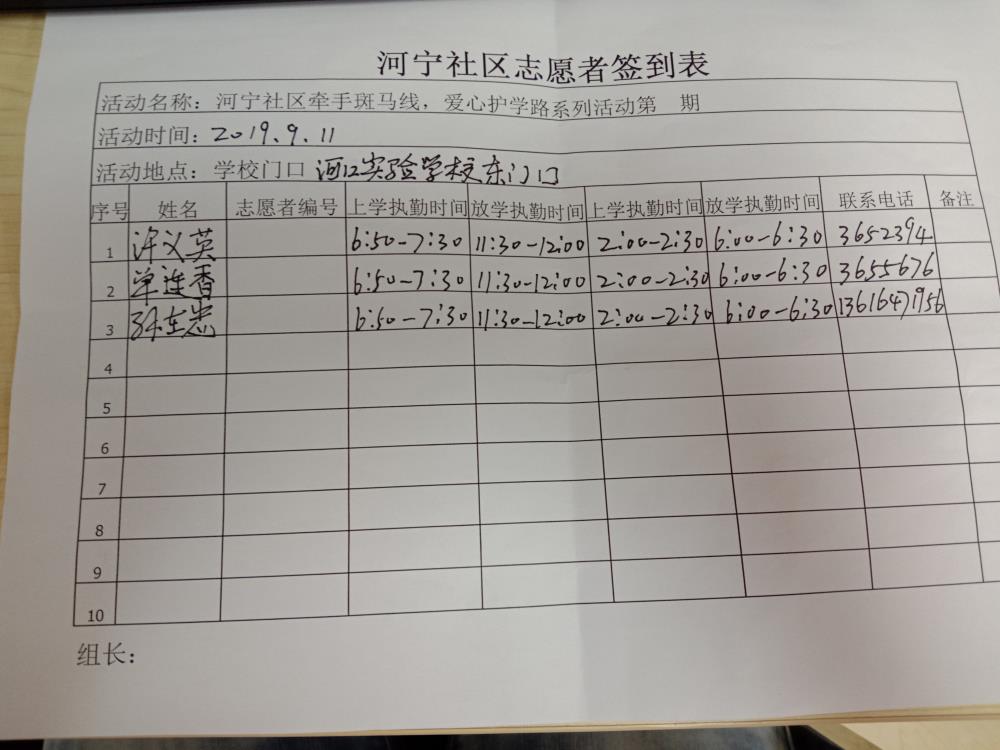 河宁社区志愿者签到表
活动名称：河宁社区牵手斑马线，爱心护学路系列活动第 期
活动时间：2019.9.11
活动地点：学校门口 河口实验学校东门口
序号 姓名 志愿者编号 上学执勤时间 放学执勤时间 上学执勤时间 放学执勤时间 联系电话 备注
1 许义英 6:50-7:30 11:30-12:00 2:00-2:30 6:00-6:30 3652394
2 单连香 6:50-7:30 11:30-12:00 2:00-2:30 6:00-6:30 3655676
3 孙在忠 6:50-7:30 11:30-12:00 2:00-2:30 6:00-6:30 13616471956
4
5
6
7
8
9
10
组长：